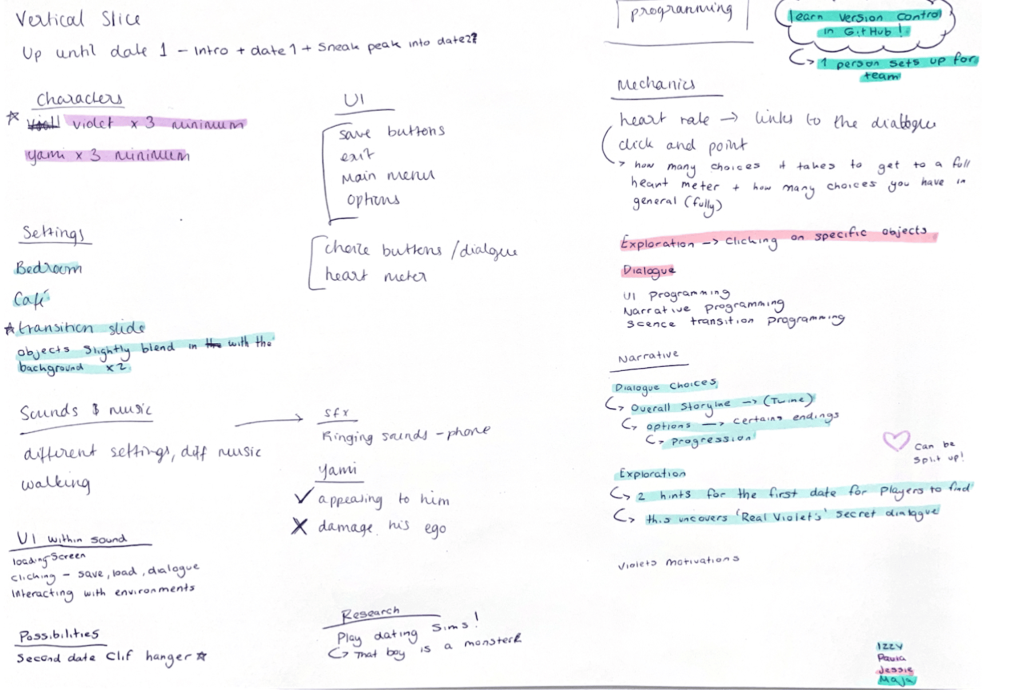 Vertical Slice
Up until date 1 - Intro + date 1 + Sneak peak into date2?
Characters
violet x 3 minimum
yami x 3 minimum
Settings
Bedroom
Café
transition slide
objects slightly blend in with the
background x2
Sounds & music
different settings, diff music
walking
UI within sound
loading screen
clicking - save, load, dialogue
Interacting with environments
Possibilities
Second date Clif hanger
UI
save buttons
exit
Main menu
options
choice buttons / dialogue
heart meter
sfx
Ringing sounds - phone
Yami
✓ appealing to him
X damage his ego
Research
Play dating sims!
That boy is a monster
programming
learn version control
in GitHub!
1 person sets up for
team
Mechanics
heart rate → links to the dialogue
click and point
how many choices it takes to get to a full
heart meter + how many choices you have in
general (fully)
Exploration → clicking on specific objects
Dialogue
UI Programming
Narrative programming
scence transition programming
Narrative
Dialogue choices
Overall Storyline → (Twine)
options → certains endings
Progression
Can be
split up!
Exploration
2 hints for the first date for players to find
this uncovers 'Real Violet's' secret dialogue
Violets motivations
Izzy
Paula
Jessie
Maja